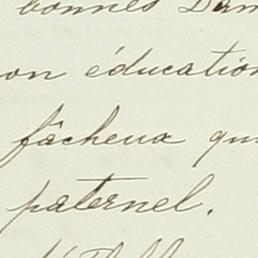 bonnes Dam
on éducation
fâcheux qu
paternel.